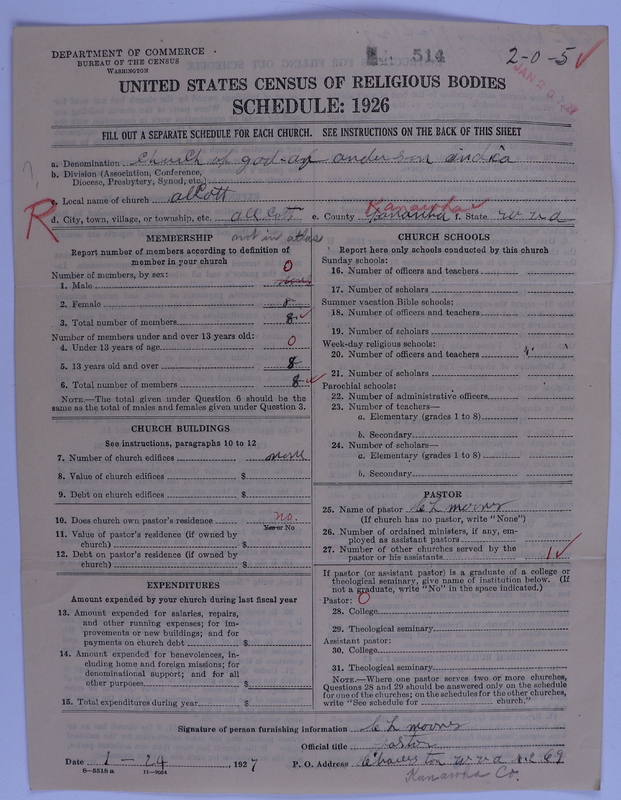 DEPARTMENT OF COMMERCE
BUREAU OF THE CENSUS
WASHINGTON
514
2-0-5 ✓
UNITED STATES CENSUS OF RELIGIOUS BODIES
SCHEDULE: 1926
FILL OUT A SEPARATE SCHEDULE FOR EACH CHURCH. SEE INSTRUCTIONS ON THE BACK OF THIS SHEET
a. Denomination church of god - anderson
b. Division (Association, Conference,
Diocese, Presbytery, Synod, etc.)
c. Local name of church allcott
R
d. City, town, village, or township, etc. allcott e. County Kanawha ✓ f. State w va
not in atlas
MEMBERSHIP
Report number of members according to definition of
member in your church
Number of members, by sex:
1. Male 0
2. Female 8
3. Total number of members 8 ✓
Number of members under and over 13 years old:
4. Under 13 years of age 0
5. 13 years old and over 8
6. Total number of members 8 ✓
NOTE.—The total given under Question 6 should be the
same as the total of males and females given under Question 3.
CHURCH BUILDINGS
See instructions, paragraphs 10 to 12
7. Number of church edifices none
8. Value of church edifices $
9. Debt on church edifices $
10. Does church own pastor's residence no.
Yes or No
11. Value of pastor's residence (if owned by
church) $
12. Debt on pastor's residence (if owned by
church) $
EXPENDITURES
Amount expended by your church during last fiscal year
13. Amount expended for salaries, repairs,
and other running expenses; for im-
provements or new buildings; and for
payments on church debt $
14. Amount expended for benevolences, in-
cluding home and foreign missions; for
denominational support; and for all
other purposes $
15. Total expenditures during year $
CHURCH SCHOOLS
Report here only schools conducted by this church
Sunday schools:
16. Number of officers and teachers
17. Number of scholars
Summer vacation Bible schools:
18. Number of officers and teachers
19. Number of scholars
Week-day religious schools:
20. Number of officers and teachers
21. Number of scholars
Parochial schools:
22. Number of administrative officers
23. Number of teachers—
a. Elementary (grades 1 to 8)
b. Secondary
24. Number of scholars—
a. Elementary (grades 1 to 8)
b. Secondary
PASTOR
25. Name of pastor C L moores
(If church has no pastor, write "None")
26. Number of ordained ministers, if any, em-
ployed as assistant pastors
27. Number of other churches served by the
pastor or his assistants 1 ✓
If pastor (or assistant pastor) is a graduate of a college or
theological seminary, give name of institution below. (If
not a graduate, write "No" in the space indicated.)
Pastor: 0
28. College
29. Theological seminary
Assistant pastor:
30. College
31. Theological seminary
NOTE.—Where one pastor serves two or more churches,
Questions 28 and 29 should be answered only on the schedule
for one of the churches; on the schedules for the other churches,
write "See schedule for church."
Signature of person furnishing information C L moores
Official title Pastor
Date 1 - 24, 1927 P. O. Address Charleston w va
8-5518a 11-9054
Kanawha Co.